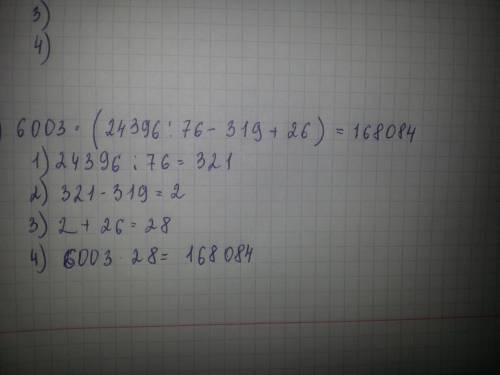 3)
4)
) 6003 · (24396 : 76 - 319 + 26) = 168084
1) 24396 : 76 = 321
2) 321 - 319 = 2
3) 2 + 26 = 28
4) 6003 · 28 = 168084